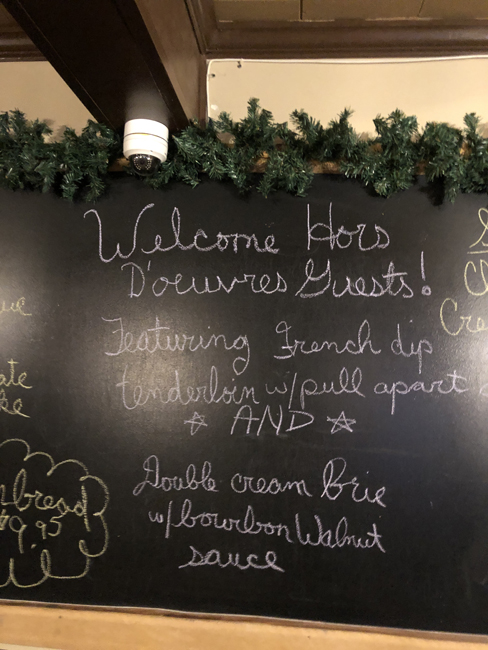 Welcome Hors
D'oeuvres Guests!
Featuring French dip
tenderloin w/pull apart
☆ AND ☆
Double cream Brie
w/bourbon Walnut
sauce
bread
9.95